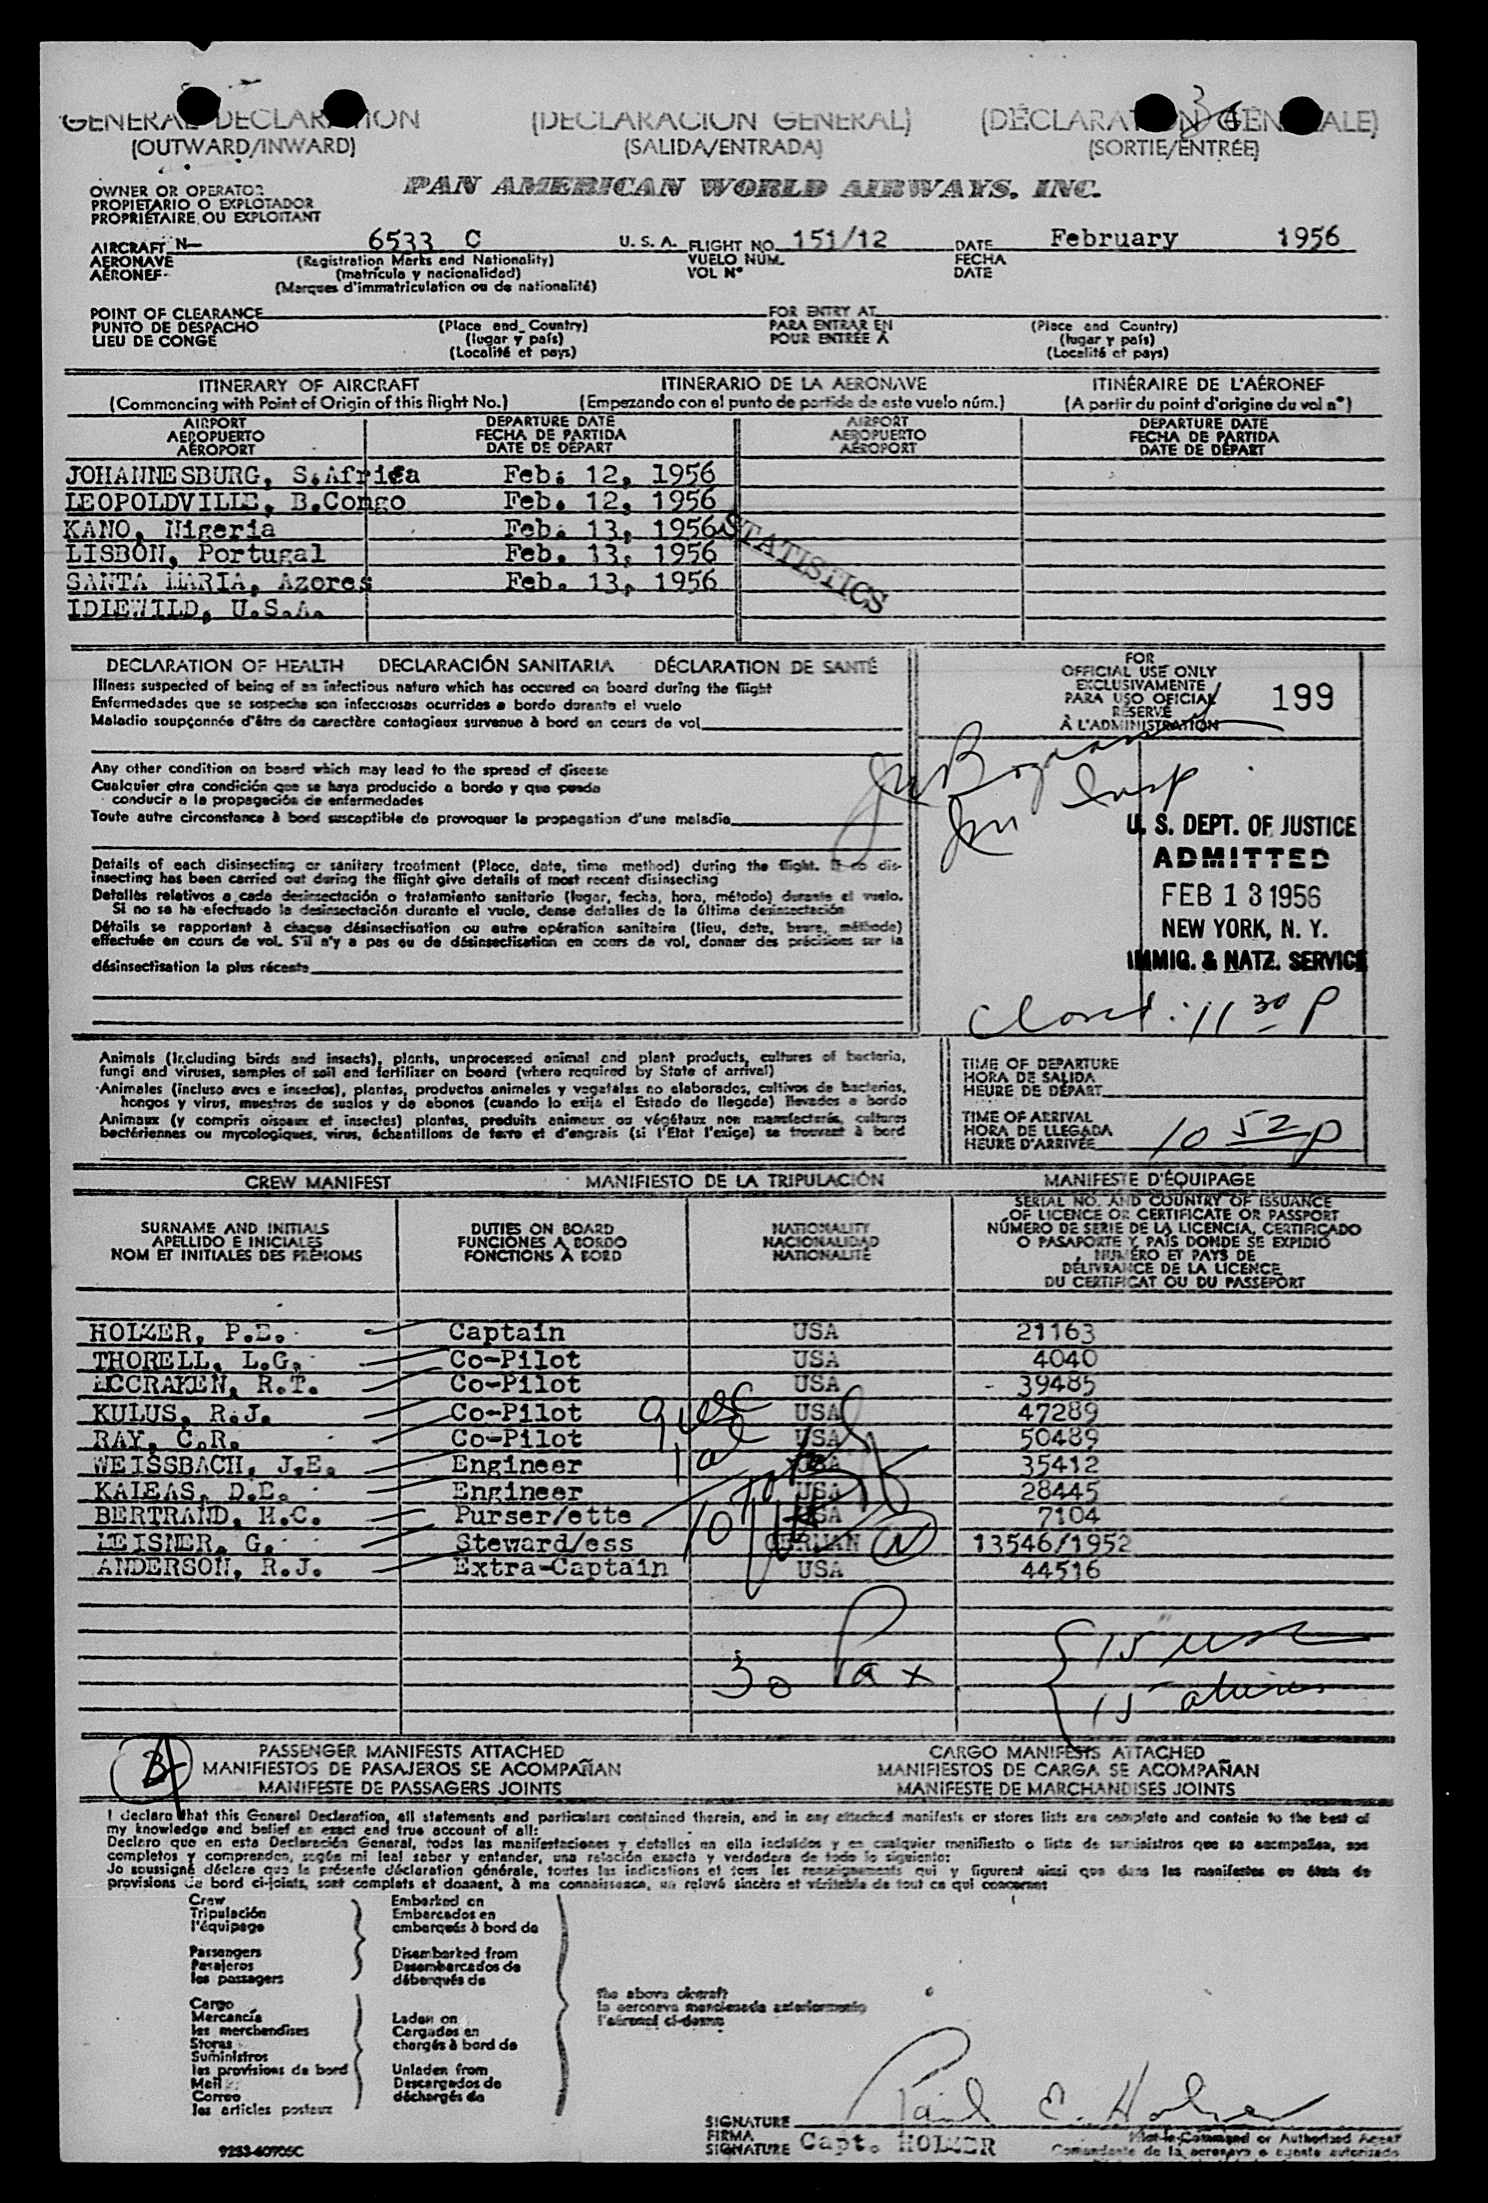 GENERAL DECLARATION (DECLARACION GENERAL) (DÉCLARATION GÉNÉRALE)
(OUTWARD/INWARD) (SALIDA/ENTRADA) (SORTIE/ENTRÉE)
OWNER OR OPERATOR PAN AMERICAN WORLD AIRWAYS, INC.
PROPIETARIO O EXPLOTADOR
PROPRIÉTAIRE OU EXPLOITANT
AIRCRAFT N— 6533 C U. S. A. FLIGHT NO. 151/12 DATE February 1956
AERONAVE (Registration Marks and Nationality) VUELO NÚM. FECHA
AÉRONEF (matrícula y nacionalidad) VOL N° DATE
(Marques d'immatriculation ou de nationalité)
POINT OF CLEARANCE FOR ENTRY AT
PUNTO DE DESPACHO (Place and Country) PARA ENTRAR EN (Place and Country)
LIEU DE CONGÉ (lugar y país) POUR ENTRÉE À (lugar y país)
(Localité et pays) (Localité et pays)
ITINERARY OF AIRCRAFT ITINERARIO DE LA AERONAVE ITINÉRAIRE DE L'AÉRONEF
(Commencing with Point of Origin of this flight No.) (Empezando con el punto de partida de este vuelo núm.) (A partir du point d'origine du vol n°)
AIRPORT DEPARTURE DATE AIRPORT DEPARTURE DATE
AEROPUERTO FECHA DE PARTIDA AEROPUERTO FECHA DE PARTIDA
AÉROPORT DATE DE DÉPART AÉROPORT DATE DE DÉPART
JOHANNESBURG, S.Africa Feb. 12, 1956
LEOPOLDVILLE, B.Congo Feb. 12, 1956
KANO, Nigeria Feb. 13, 1956
LISBON, Portugal Feb. 13, 1956
SANTA MARIA, Azores Feb. 13, 1956
IDLEWILD, U.S.A.
STATISTICS
DECLARATION OF HEALTH DECLARACIÓN SANITARIA DÉCLARATION DE SANTÉ
Illness suspected of being of an infectious nature which has occured on board during the flight
Enfermedades que se sospecha son infecciosas ocurridas a bordo durante el vuelo
Maladie soupçonnée d'être de caractère contagieux survenue à bord en cours de vol
FOR
OFFICIAL USE ONLY
EXCLUSIVAMENTE
PARA USO OFICIAL
RÉSERVÉ
À L'ADMINISTRATION
199
Any other condition on board which may lead to the spread of disease
Cualquier otra condición que se haya producido a bordo y que pueda
conducir a la propagación de enfermedades
Toute autre circonstance à bord susceptible de provoquer la propagation d'une maladie
Imm Insp
U. S. DEPT. OF JUSTICE
ADMITTED
FEB 13 1956
NEW YORK, N. Y.
IMMIG. & NATZ. SERVICE
Closed: 11 30 P
Details of each disinsecting or sanitary treatment (Place, date, time method) during the flight. If no dis-
insecting has been carried out during the flight give details of most recent disinsecting
Detalles relativos a cada desinsectación o tratamiento sanitario (lugar, fecha, hora, método) durante el vuelo.
Si no se ha efectuado la desinsectación durante el vuelo, dense detalles de la última desinsectación
Détails se rapportant à chaque désinsectisation ou autre opération sanitaire (lieu, date, heure, méthode)
effectuée en cours de vol. S'il n'y a pas eu de désinsectisation en cours de vol, donner des précisions sur la
désinsectisation la plus récente
Animals (Including birds and insects), plants, unprocessed animal and plant products, cultures of bacteria,
fungi and viruses, samples of soil and fertilizer on board (where required by State of arrival)
Animales (incluso aves e insectos), plantas, productos animales y vegetales no elaborados, cultivos de bacterias,
hongos y virus, muestras de suelos y de abonos (cuando lo exija el Estado de llegada) llevados a bordo
Animaux (y compris oiseaux et insectes) plantes, produits animaux ou végétaux non manufacturés, cultures
bactériennes ou mycologiques, virus, échantillons de terre et d'engrais (si l'Etat l'exige) se trouvant à bord
TIME OF DEPARTURE
HORA DE SALIDA
HEURE DE DÉPART
TIME OF ARRIVAL
HORA DE LLEGADA
HEURE D'ARRIVÉE 10 52 P
CREW MANIFEST MANIFIESTO DE LA TRIPULACIÓN MANIFESTE D'ÉQUIPAGE
SURNAME AND INITIALS DUTIES ON BOARD NATIONALITY SERIAL NO. AND COUNTRY OF ISSUANCE
APELLIDO E INICIALES FUNCIONES A BORDO NACIONALIDAD OF LICENCE OR CERTIFICATE OR PASSPORT
NOM ET INITIALES DES PRÉNOMS FONCTIONS À BORD NATIONALITÉ NÚMERO DE SERIE DE LA LICENCIA, CERTIFICADO
O PASAPORTE Y PAÍS DONDE SE EXPIDIÓ
NUMÉRO ET PAYS DE
DÉLIVRANCE DE LA LICENCE
DU CERTIFICAT OU DU PASSEPORT
HOLZER, P.E. Captain USA 21163
THORELL, L.G. Co-Pilot USA 4040
MCCRAKEN, R.T. Co-Pilot USA 39485
KULUS, R.J. Co-Pilot USA 47289
RAY, C.R. Co-Pilot USA 50489
WEISSBACH, J.E. Engineer USA 35412
KALEAS, D.E. Engineer USA 28445
BERTRAND, H.C. Purser/ette USA 7104
MEISNER, G. Steward/ess GERMAN 13546/1952
ANDERSON, R.J. Extra-Captain USA 44516
9 usc
1 al
10 Total
30 Pax { 15 usc
15 aliens
PASSENGER MANIFESTS ATTACHED CARGO MANIFESTS ATTACHED
MANIFIESTOS DE PASAJEROS SE ACOMPAÑAN MANIFIESTOS DE CARGA SE ACOMPAÑAN
MANIFESTE DE PASSAGERS JOINTS MANIFESTE DE MARCHANDISES JOINTS
I declare that this General Declaration, all statements and particulars contained therein, and in any attached manifests or stores lists are complete and contain to the best of
my knowledge and belief an exact and true account of all:
Declaro que en esta Declaración General, todas las manifestaciones y detalles en ella incluídos y en cualquier manifiesto o lista de suministros que se acompañen, son
completos y comprenden, según mi leal saber y entender, una relación exacta y verdadera de todo lo siguiente:
Je soussigné déclare que la présente déclaration générale, toutes les indications et tous les renseignements qui y figurent ainsi que dans les manifestes ou états de
provisions de bord ci-joints, sont complets et donnent, à ma connaissance, un relevé sincère et véritable de tout ce qui concerne:
Crew Embarked on
Tripulación Embarcados en
l'équipage embarqués à bord de
Passengers Disembarked from
Pasajeros Desembarcados de
les passagers débarqués de
The above aircraft
la aeronave mencionada anteriormente
l'aéronef ci-dessus
Cargo
Mercancía Laden on
les merchandises Cargados en
Stores chargés à bord de
Suministros
les provisions de bord Unladen from
Mail Descargados de
Correo déchargés de
les articles postaux
SIGNATURE Paul E. Holzer
FIRMA Capt. HOLZER Pilot-in-Command or Authorized Agent
SIGNATURE Comandante de la aeronave o agente autorizado
9253-60705C